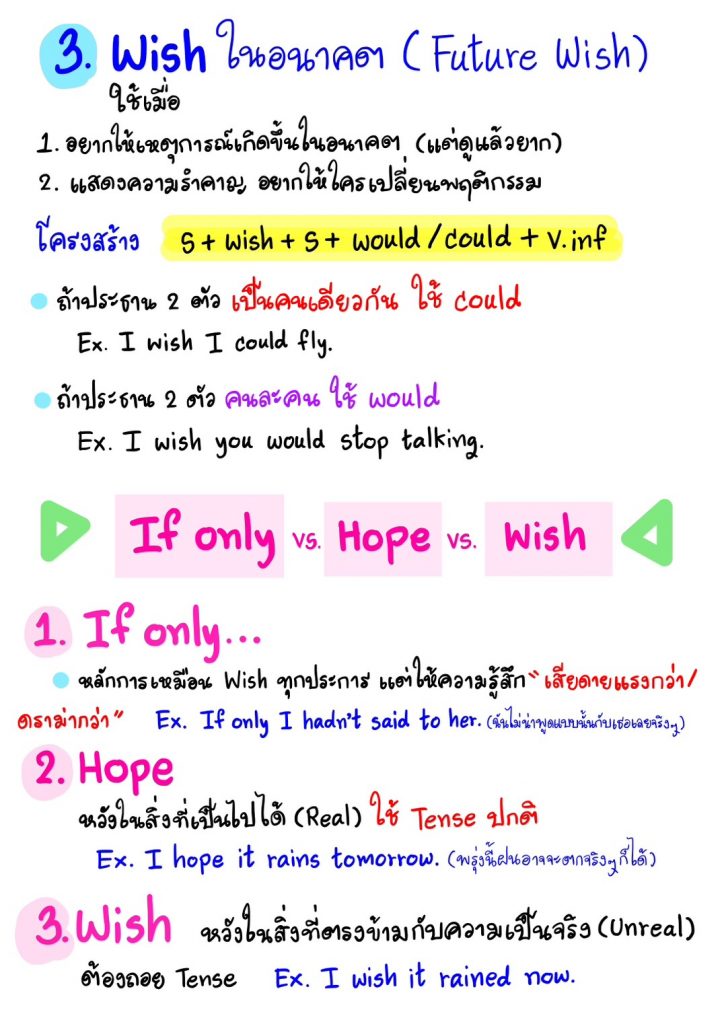 3. Wish ในอนาคต (Future Wish)
ใช้เมื่อ
1. อยากให้เหตุการณ์เกิดขึ้นในอนาคต (แต่ดูแล้วยาก)
2. แสดงความรำคาญ อยากให้ใครเปลี่ยนพฤติกรรม
โครงสร้าง S + wish + S + would/could + V.inf
ถ้าประธาน 2 ตัว เป็นคนเดียวกัน ใช้ could
Ex. I wish I could fly.
ถ้าประธาน 2 ตัว คนละคน ใช้ would
Ex. I wish you would stop talking.
If only vs. Hope vs. Wish
1. If only...
หลักการเหมือน Wish ทุกประการ แต่ให้ความรู้สึก “เสียดายแรงกว่า/
ดราม่ากว่า” Ex. If only I hadn't said to her. (ฉันไม่น่าพูดแบบนั้นกับเธอเลยจริงๆ)
2. Hope
หวังในสิ่งที่เป็นไปได้ (Real) ใช้ Tense ปกติ
Ex. I hope it rains tomorrow. (พรุ่งนี้ฝนอาจจะตกจริงๆก็ได้)
3. Wish หวังในสิ่งที่ตรงข้ามกับความเป็นจริง (Unreal)
ต้องถอย Tense Ex. I wish it rained now.